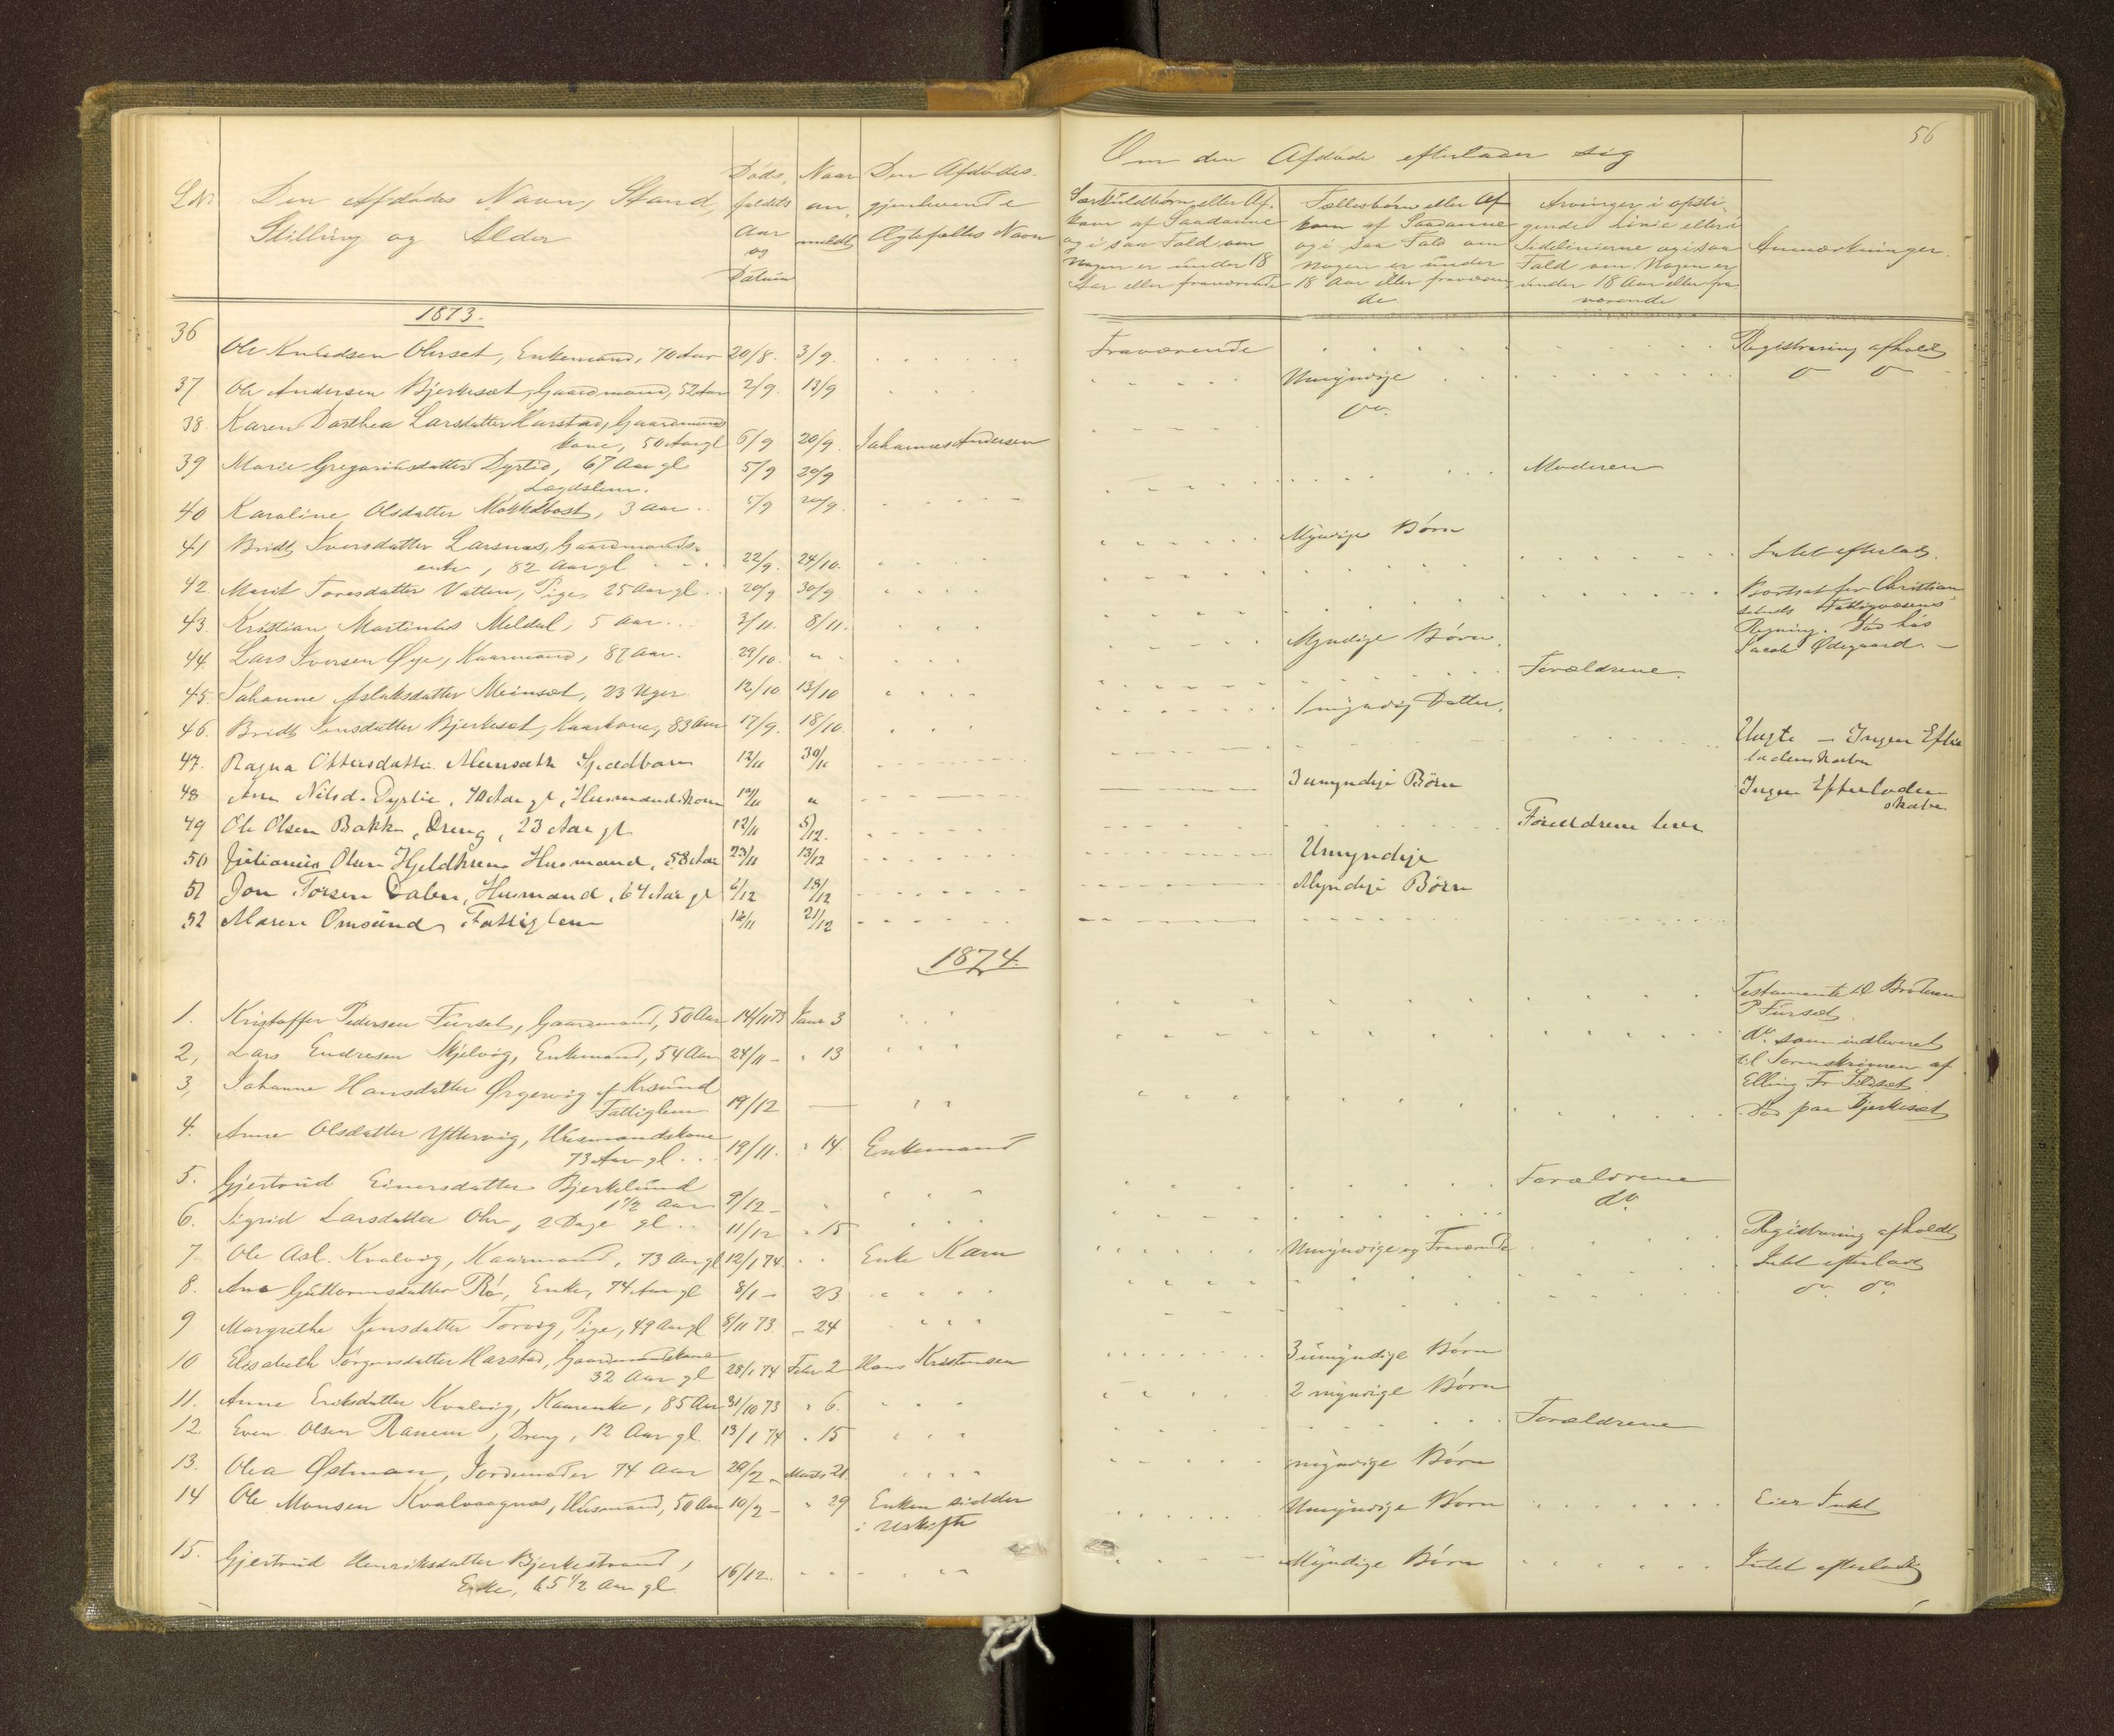 56
L.No. Den Afdødes Navn, Stand, Stilling og Alder
Døds, faldets Aar og Datum
Naar an, meldt
Den Afdødes gjenlevende Ægtefælles Navn
Om den Afdøde efterlader sig
Særkuldbørn eller Af,
kom af Saadanne
og i saa Fald om
Nogen er under 18
Aar eller fraværende
Fællesbørn eller Af
kom af Saadanne
og i saa Fald om
nogen er under
18 Aar eller fraværen
de
Arvinger i opsti,
gende Linie eller i
Sidelinierne og i saa
Fald om Nogen er
under 18 Aar eller fra
værende
Anmærkninger.
1873.
36 Ole Knudsen Ohrset, Enkemand, 70 Aar 20/8. 3/9. Fraværende Registrering afholdt
37 Ole Andersen Bjerkesæt, Gaardmand, 52 Aar 2/9. 13/9 Umyndige
38. Karen Dorthea Larsdatter Harstad, Gaardmands
kone, 50 Aar gl 6/9 20/9. Johannes Andersen do.
39 Marie Gregoriusdatter Dyrlid, 67 Aar gl 5/9 20/9 Moderen
Lægdslem.
40 Karoline Olsdatter Mokkelbost, 3 Aar .. 5/9 20/9.
41 Bridt Iversdatter Larsnæs, Gaardmands
enke, 82 Aar gl 22/9. 24/10. Myndige Børn Intet efterladt.
42 Marit Toresdatter Vatten, Pige, 25 Aar gl .. 20/9 30/9
43. Kristian Martinus Meldal, 5 Aar ... 3/11. 8/11. Bortsat for Christian,
sunds Fattigvæsens
Regning. Død hos
Jacob Ødegaard. —
44. Lars Iversen Øye, Kaarmand, 87 Aar. 29/10. " Myndige Børn.
45. Johanne Aslaksdatter Meinset, 23 Uger 12/10 13/10 Forældrene.
46. Bridt Jensdatter Bjerkesæt, Kaarkone, 83 Aar 17/9. 18/10. 1 myndig Datter.
47. Ragna Ottersdatter Meinsæth Spædbarn 12/11 30/11 Uægte — Ingen Efter
ladenskaber
48 Ane Nilsd. Dyrlie, 70 Aar gl, Husmandskone 10/11 " 3 umyndige Børn Ingen Efterladen
skaber
49 Ole Olsen Bakk, Dreng, 23 Aar gl 12/11 5/12. Forældrene lever
50 Julianus Olsen Hjeldknes Husmand, 58 Aar 23/11 13/12 Umyndige
51 Jon Torsen Dalen, Husmand, 64 Aar gl 2/12 18/12 Myndige Børn
52 Maren Omsund, Fattiglem 12/11 21/12
1874.
1. Kristoffer Pedersen Furset, Gaardmand, 50 Aar 14/11 73 Janr 3 Testamente til Broderen
P. Furset.
2, Lars Endresen Skjelvig, Enkemand, 54 Aar 24/11 - " 13 do. som indleveret
til Sorenskriveren af
Elling Fr. Sildset
3, Johanne Hansdatter Ørgervig af Krsund
Fattiglem 19/12 — Død paa Bjerkesæt
4. Anne Olsdatter Yttervig, Husmandskone
73 Aar gl ... 19/11. " 14. Enkemand
5. Gjertrud Einersdatter Bjerkelund
1 1/2 Aar 9/12 - Forældrene
6. Sigrid Larsdatter Ohr, 2 Dage gl .. 11/12 " 15 do.
7 Ole Asl. Kvalvig, Kaarmand, 73 Aar gl 12/1 74. Enke Karen Umyndige og Fraværende Registrering afholdt
8. Ane Guttormsdatter Rø, Enke, 74 Aar gl 8/1 - 23 Intet efterladt
9 Margrethe Jensdatter Torvig, Pige, 49 Aar gl 8/11 73. - 24 do. do.
10 Elisabeth Jørgensdatter Harstad, Gaardmandskone
32 Aar gl 28/1 74 Febr 2 Hans Kristensen 3 umyndige Børn
11. Anne Eriksdatter Kvalvig, Kaarenke, 85 Aar 31/10 73 " 6. 2 myndige Børn
12. Even Olsen Ranem, Dreng, 12 Aar gl. 13/1 74 " 15 Forældrene
13. Olea Østman, Jordemoder 74 Aar 20/2 - Marts 21. myndige Børn
14 Ole Monsen Kvalvaagnæs, Husmand, 50 Aar 10/2 - " 29 Enken sidder
i uskifte Umyndige Børn Eier Intet
15. Gjertrud Henriksdatter Bjerkestrand,
Enke, 65 1/2 Aar gl. 16/12. Myndige Børn Intet efterladt